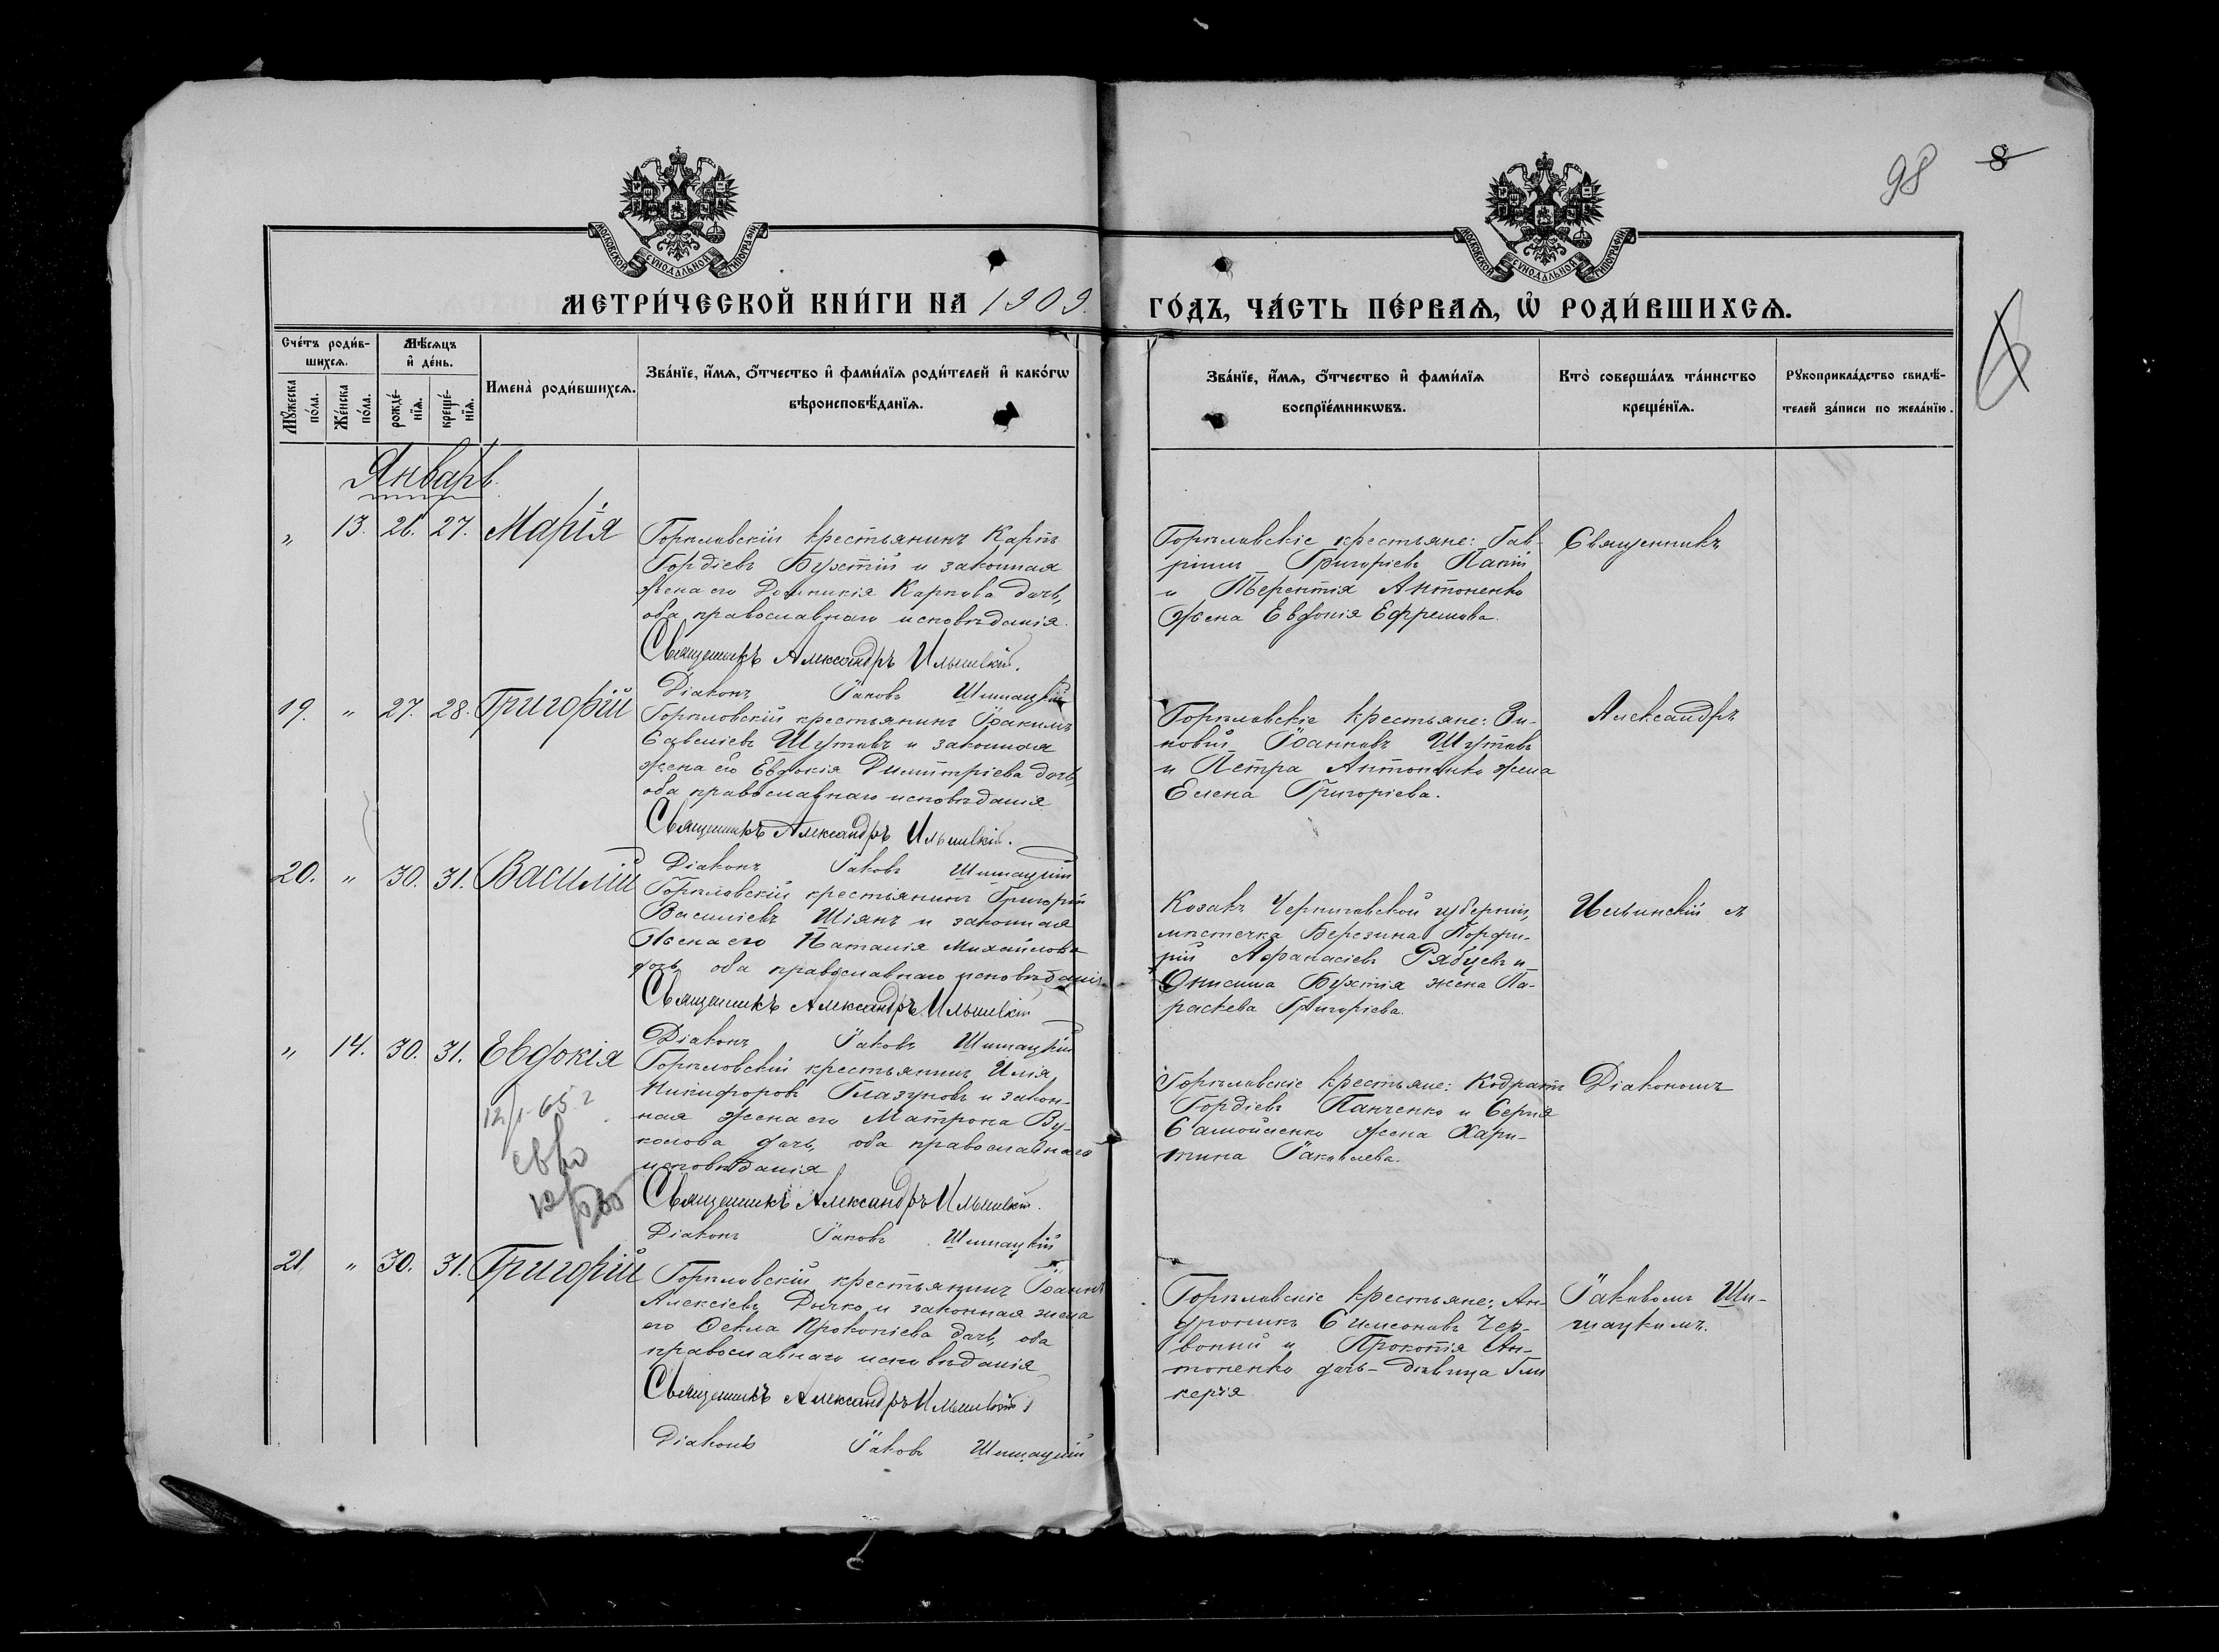 98 8
МОСКОВСКОЙ СѴНОДАЛЬНОЙ ТИПОГРАФІИ
МОСКОВСКОЙ СѴНОДАЛЬНОЙ ТИПОГРАФІИ
МЕТРИ́ЧЕСКОЙ КНИ́ГИ НА 1909. ГО́ДЪ, ЧА́СТЬ ПЕ́РВАѦ, Ѡ҆ РОДИ́ВШИХСѦ.
Сче́тъ роди́в-
шихсѧ.
Мꙋ́жеска
по́ла.
Же́нска
по́ла.
Мѣ́сѧцъ
и҆ де́нь.
рожде́-
нїѧ.
креще́-
нїѧ.
Имена̀ роди́вшихсѧ.
Зва́нїе, и҆́мѧ, ѻ҆́тчество и҆ фами́лїѧ роди́телей и҆ како́гѡ
вѣроисповѣ́данїѧ.
Зва́нїе, и҆́мѧ, ѻ҆́тчество и҆ фами́лїѧ
воспрїе́мникѡвъ.
Кто̀ соверша́лъ та́инство
креще́нїѧ.
Рꙋкоприкла́дство свидѣ́-
телей за́писи по жела́нїю.
Январь.
„ 13. 26. 27. Марія
Горѣловскій крестьянинъ Карпъ
Гордіевъ Бухтій и законная
жена его Домникія Карпова дочь,
оба православнаго исповѣданія.
Священникъ Александръ Ильинскій.
Діаконъ Іаковъ Шишацкій
Горѣловскіе крестьяне: Гав-
ріилъ Григоріевъ Пакій
и Терентія Антоненко
жена Евдокія Ефремова.
Священникъ
19. „ 27. 28. Григорій
Горѣловскій крестьянинъ Іоакимъ
Савеліевъ Шутовъ и законная
жена его Евдокія Димитріева дочь,
оба православнаго исповѣданія
Священникъ Александръ Ильинскій.
Діаконъ Іаковъ Шишацкій
Горѣловскіе крестьяне: Зи-
новій Іоанновъ Шутовъ
и Петра Антоненко жена
Елена Григоріева.
Александръ
20. „ 30. 31. Василій
Горѣловскій крестьянинъ Григорій
Василіевъ Шіянъ и законная
жена его Наталія Михайлова
дочь, оба православнаго исповѣданія
Священникъ Александръ Ильинскій
Діаконъ Іаковъ Шишацкій
Козакъ Черниговской губерніи,
мѣстечка Березина Порфи-
рій Афанасіевъ Рябцевъ и
Онисима Бухтія жена Па-
раскева Григоріева.
Ильинскій съ
„ 14. 30. 31. Евдокія
Горѣловскій крестьянинъ Илія
Никифоровъ Глазуновъ и закон-
ная жена его Матрона Ву-
колова дочь, оба православнаго
исповѣданія
Священникъ Александръ Ильинскій.
Діаконъ Іаковъ Шишацкій
Горѣловскіе крестьяне: Кодратъ
Гордіевъ Панченко и Сергія
Самойленко жена Хари-
тина Іаковлева.
Діакономъ
21 „ 30. 31. Григорій
Горѣловскій крестьянинъ Іоаннъ
Алексіевъ Дычко и законная жена
его Ѳекла Прокопіева дочь, оба
православнаго исповѣданія
Священникъ Александръ Ильинскій
Діаконъ Іаковъ Шишацкій
Горѣловскіе крестьяне: Ан-
дроникъ Симеоновъ Чер-
воній и Прокопія Ан-
тоненко дочь-дѣвица Гли
керія
Іаковомъ Ши-
шацкимъ.